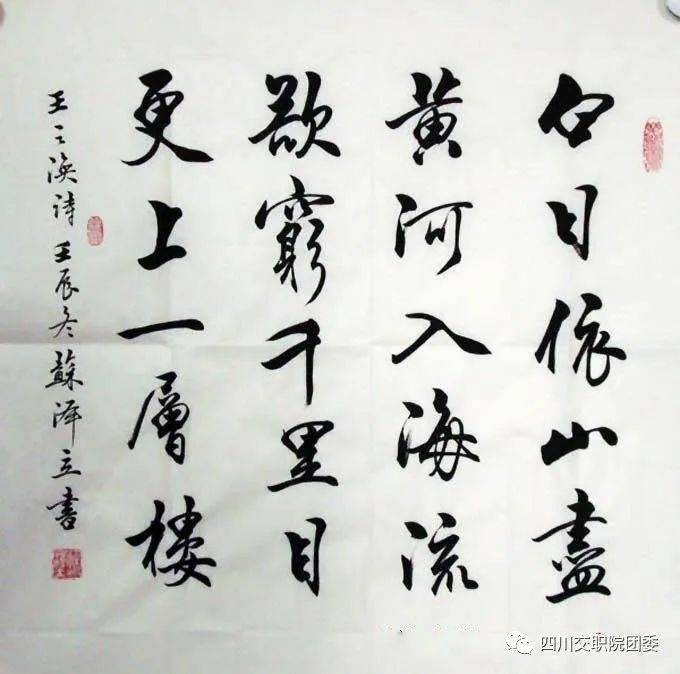 白日依山盡
黄河入海流
欲窮千里目
更上一層樓
王之渙诗 壬辰冬 蘇泽立書
四川交职院团委